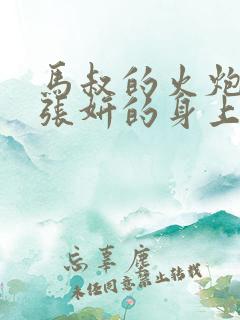 馬叔的火炮
張妍的身上
忘辜塵
未经同意禁止转载